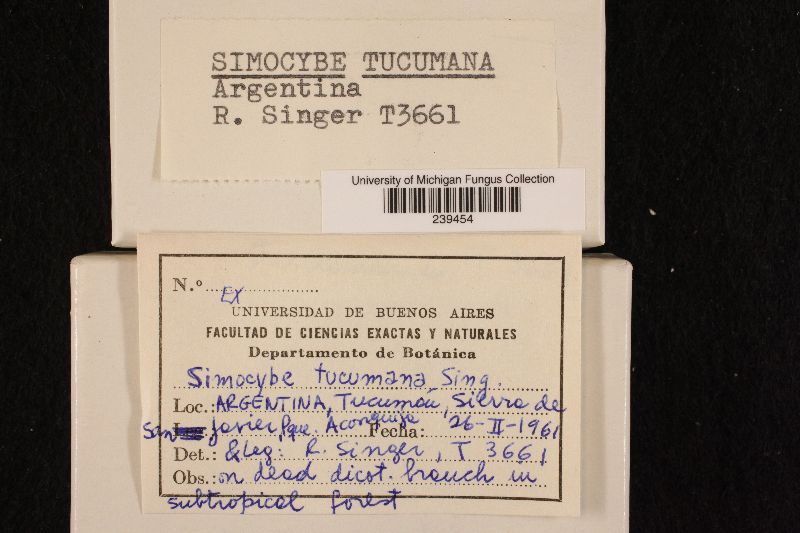 SIMOCYBE TUCUMANA
Argentina
R. Singer T3661
University of Michigan Fungus Collection
239454
N.º
Ex
UNIVERSIDAD DE BUENOS AIRES
FACULTAD DE CIENCIAS EXACTAS Y NATURALES
Departamento de Botánica
Simocybe tucumana Sing.
Loc.: ARGENTINA, Tucumán, Sierra de
San Javier Pque. Aconquija Fecha: 26-II-1961
Det.: & Leg: R. Singer, T 3661
Obs.: on dead dicot. branch in
subtropical forest